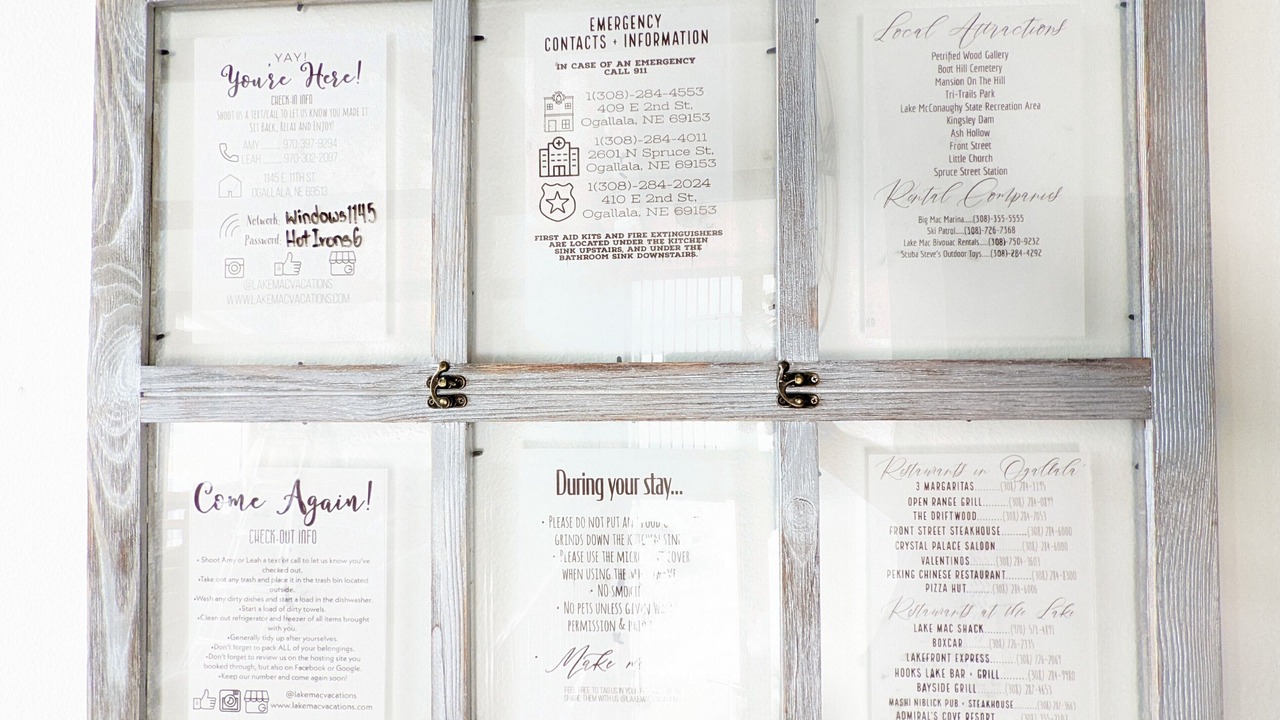 YAY!
You're Here!
CHECK-IN INFO
SHOOT US A TEXT/CALL TO LET US KNOW YOU MADE IT
SIT BACK, RELAX AND ENJOY!
AMY.........970-397-9294
LEAH.........970-302-2097
1145 E. 11TH ST.
OGALLALA, NE 69513
Network: Windows1145
Password: HotIrons6
@LAKEMACVACATIONS
WWW.LAKEMACVACATIONS.COM
EMERGENCY
CONTACTS + INFORMATION
IN CASE OF AN EMERGENCY
CALL 911
1(308)-284-4553
409 E 2nd St,
Ogallala, NE 69153
1(308)-284-4011
2601 N Spruce St,
Ogallala, NE 69153
1(308)-284-2024
410 E 2nd St,
Ogallala, NE 69153
FIRST AID KITS AND FIRE EXTINGUISHERS
ARE LOCATED UNDER THE KITCHEN
SINK UPSTAIRS, AND UNDER THE
BATHROOM SINK DOWNSTAIRS.
Local Attractions
Petrified Wood Gallery
Boot Hill Cemetery
Mansion On The Hill
Tri-Trails Park
Lake McConaughy State Recreation Area
Kingsley Dam
Ash Hollow
Front Street
Little Church
Spruce Street Station
Rental Companies
Big Mac Marina.....(308)-355-5555
Ski Patrol....(308)-726-7368
Lake Mac Bivouac Rentals....(308)-750-9232
Scuba Steve's Outdoor Toys....(308)-284-4292
Come Again!
CHECK-OUT INFO
•Shoot Amy or Leah a text or call to let us know you've
checked out.
•Take out any trash and place it in the trash bin located
outside.
•Wash any dirty dishes and start a load in the dishwasher.
•Start a load of dirty towels.
•Clean out refrigerator and freezer of all items brought
with you.
•Generally tidy up after yourselves.
•Don't forget to pack ALL of your belongings.
•Don't forget to review us on the hosting site you
booked through, but also on Facebook or Google.
•Keep our number and come again soon!
@lakemacvacations
www.lakemacvacations.com
During your stay...
• PLEASE DO NOT PUT ANY FOOD
GRINDS DOWN THE KITCHEN SINK
• PLEASE USE THE MICROWAVE COVER
WHEN USING THE
• NO SMOKING
• NO PETS UNLESS GIVEN
PERMISSION &
Make
FEEL FREE TO TAG US IN YOUR
SHARE THEM WITH US
Restaurants in Ogallala
3 MARGARITAS.........(308) 284-1195
OPEN RANGE GRILL........(308) 284-0899
THE DRIFTWOOD.......(308) 284-7053
FRONT STREET STEAKHOUSE.........(308) 284-6000
CRYSTAL PALACE SALOON........(308) 284-6000
VALENTINOS........(308) 284-3603
PEKING CHINESE RESTAURANT........(308) 284-8300
PIZZA HUT........(308) 284-6006
Restaurants at the Lake
LAKE MAC SHACK........(970) 571-4895
BOXCAR........(308) 726-2335
LAKEFRONT EXPRESS........(308) 726-7069
HOOKS LAKE BAR + GRILL.......(308) 284-9980
BAYSIDE GRILL.......(308) 287-4653
MASHI NIBLICK PUB + STEAKHOUSE
ADMIRAL'S COVE RESORT